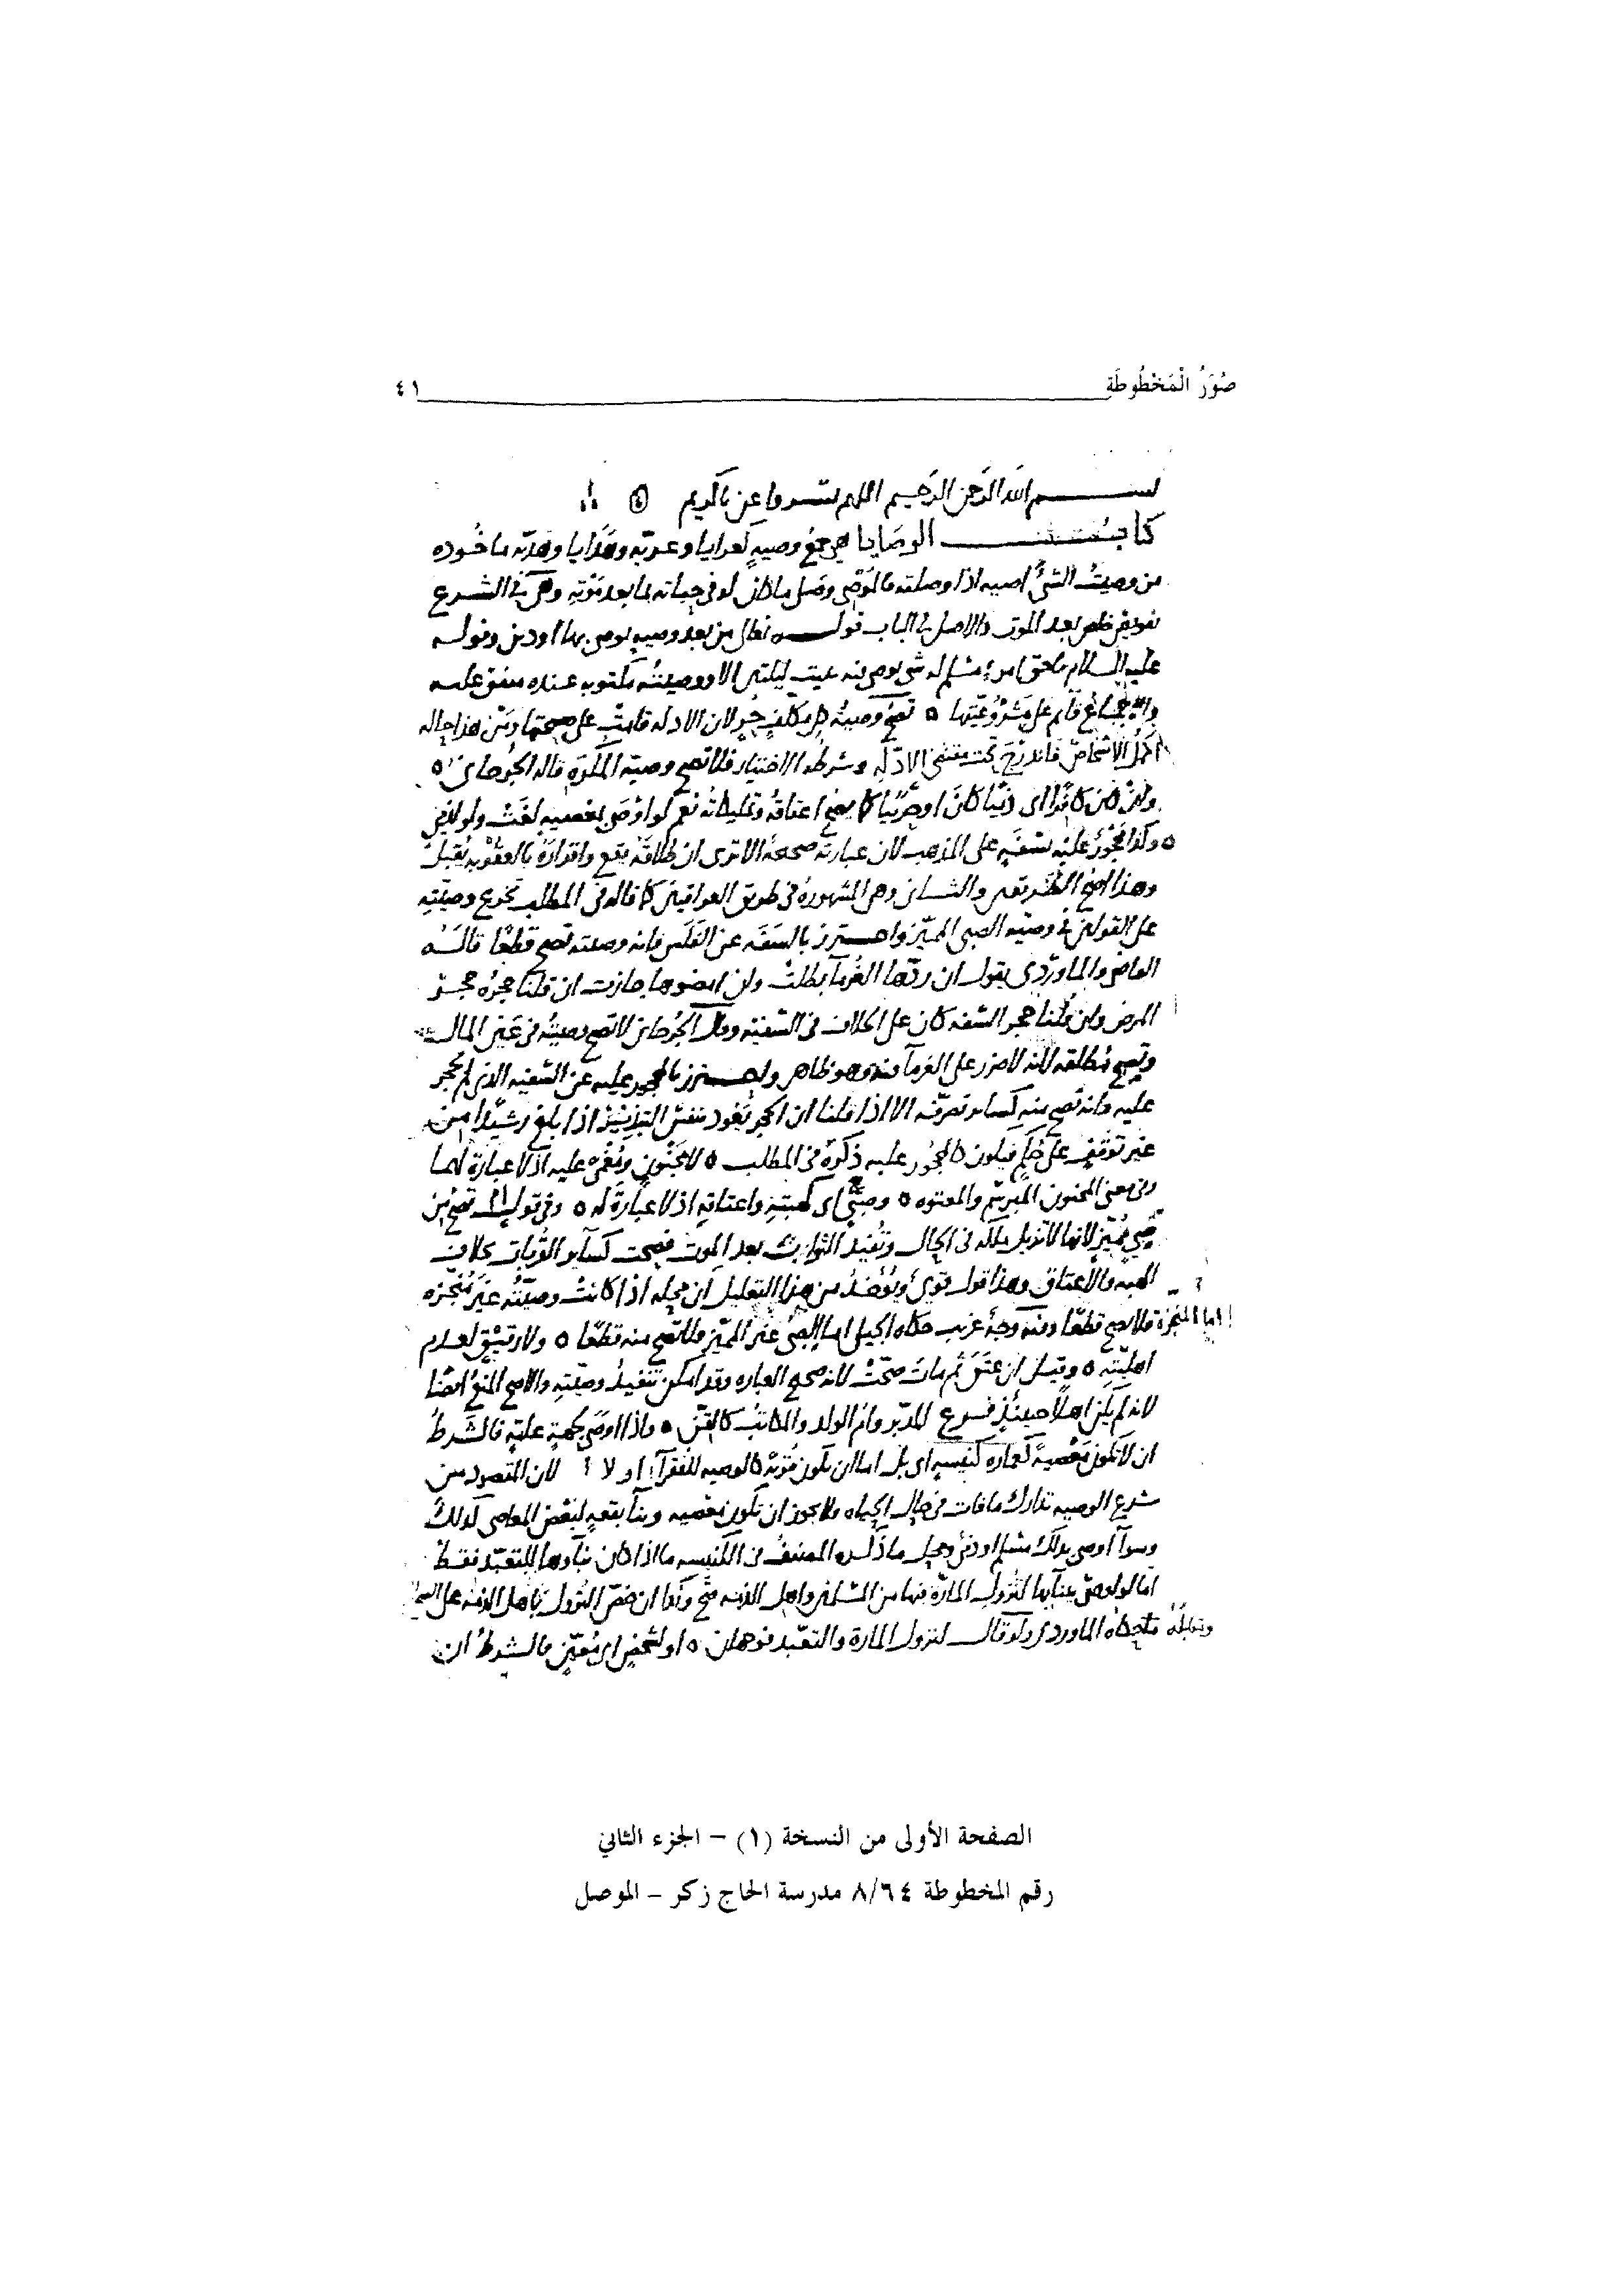 صُوَرُ الْمَخْطُوطَةِ ٤١
بسم الله الرحمن الرحيم اللهم يسر واعن يا كريم
كتاب الوصايا هي جمع وصية كعرايا وعرية وهدايا وهدية ماخوذه
من وصيت الشئ اصيه اذا وصلته فالموصي وصل ما كان له في حياته بما بعد موته وهي في الشرع
تفويض خاص بعد الموت والاصل في الباب قوله تعالى من بعد وصية يوصى بها او دين وقوله
عليه السلام ما حق امرئ مسلم له شي يوصي فيه يبيت ليلتين الا ووصيته مكتوبه عنده متفق عليه
والاجماع قائم على مشروعيتها ٥ تصح وصية كل مكلف حر لان الادله قامت على صحتها ومن هذا حاله
اكمل الاشخاص فاندرج تحت مقتضى الادلة وشرطه الاختيار فلا تصح وصية المكره قاله الجرجاني ٥
وان كان كافرا اي ذميا كان او حربيا كما يصح اعتاقه وتمليكاته نعم لو اوصى بمعصيه لغت ولو لذمي
٥ وكذا محجور عليه بسفه على المذهب لان عبارته صحيحة الا ترى ان طلاقه يقع واقراره بالعقوبه يقبل
وهذا اصح الطريقين والثاني وهي المشهوره في طريق العراقيين كما قاله في المطلب تخريج وصيته
على القولين في وصية الصبي المميز واحترز بالسفه عن الفلس فانه وصيته تصح قطعا قاله
القاضي والماوردي يقول ان ردها الغرما بطلت وان امضوها جازت ان قلنا حجره حجر
المرض وان قلنا حجر السفه كان على الخلاف في السفيه وقال الجرجاني لا تصح وصيته في عين المال
وتصح مطلقه لانه لا ضرر على الغرما فيه وهو ظاهر واحترز بالمحجور عليه عن السفيه الذي لم يحجر
عليه فانه تصح منه كسائر تصرفه الا اذا قلنا ان الحجر يعود بنفس التبذير اذا بلغ رشيدا من
غير توقف على حكم فيكون كالمحجور عليه ذكره في المطلب ٥ لا مجنون ومغمى عليه اذ لا عبارة لهما
وفي معنى المجنون المبرسم والمعتوه ٥ وصبي اي كهبته واعتاقه اذ لا عبارة له ٥ وفي قول تصح من
صبي مميز لانها لا تزيل ملكه في الحال وتفيد الثواب بعد الموت فصحت كسائر القربات بخلاف
الهبه والاعتاق وهذا قول قوي ويؤخذ من هذا التعليل ان محله اذا كانت وصيته غير منجزه
اما المنجزة فلا تصح قطعا وفيه وجه غريب حكاه الجيلي اما الصبي غير المميز فلا تصح منه قطعا ٥ ولا رقيق لعدم
اهليته ٥ وقيل ان عتق ثم مات صحت لانه صحيح العباره وقد امكن تنفيذ وصيته والاصح المنع ايضا
لانه لم يكن اهلا حينئذ فرع المدبر وام الولد والمكاتب كالقن ٥ واذا اوصى لجهة عامة فالشرط
ان لا تكون معصية كعماره كنيسه اي بل اما ان تكون قربة كالوصيه للفقراء او لا لان المقصود من
شرع الوصيه تدارك ما فات في حال الحياه فلا يجوز ان تكون معصيه وبنا بقعه لبعض المعاصي كذلك
وسوا اوصى بذلك مسلم او ذمي ومحل ما ذكره المصنف في الكنيسه ما اذا كان بناوها للتعبد فقط
اما لو اوصى ببنائها لنزول المارة فيها من المسلمين واهل الذمه صح وكذا ان خص النزول باهل الذمه على
ومقابله حكاه الماوردي ولو قال لنزول المارة والتعبد فوجهان ٥ او لشخص اي معين فالشرط ان
الصفحة الأولى من النسخة (١) – الجزء الثاني
رقم المخطوطة ٨/٦٤ مدرسة الحاج زكر – الموصل